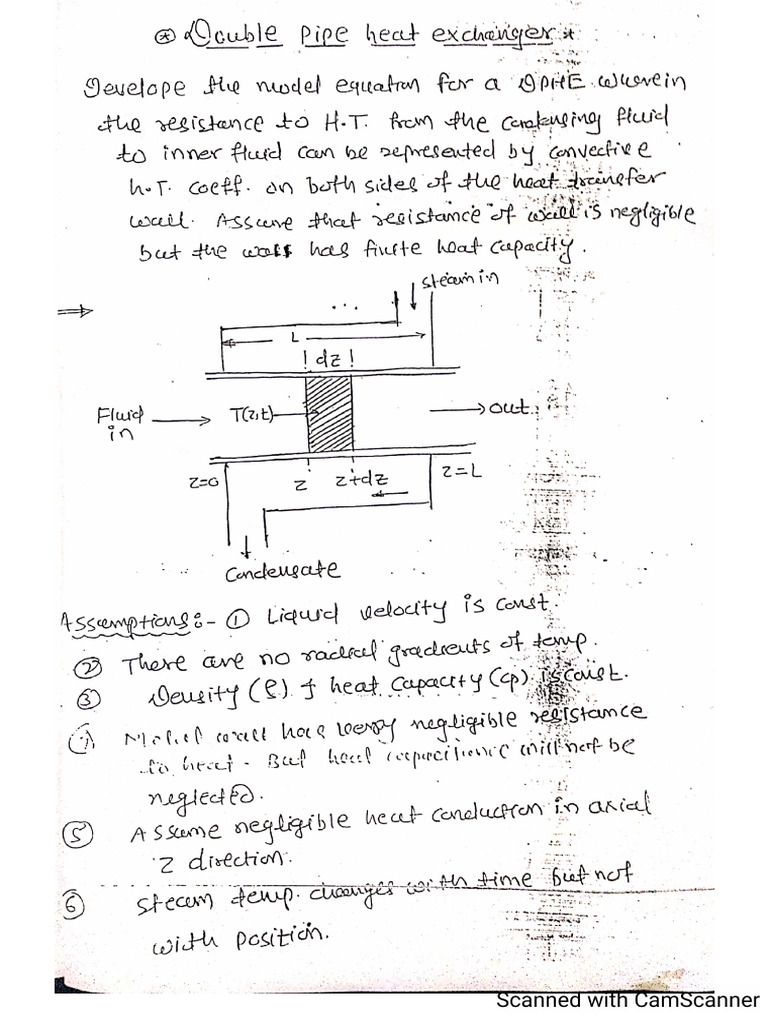 ⊛ Double pipe heat exchanger *
Develope the model equation for a DPHE wherein
the resistance to H.T. from the condensing fluid
to inner fluid can be represented by convective
h.T. coeff. on both sides of the heat transfer
wall. Assume that resistance of wall is negligible
but the wall has finite heat capacity.
⇒
...
steam in
L
dz
Fluid
in
T(z,t)
out
z=0
z
z+dz
z=L
Condensate
Assumptions:- ① Liquid velocity is const.
② There are no radial gradients of temp.
③ Density (ρ) & heat capacity (cp) is const.
④ Metal wall has very negligible resistance
to heat. But heat capacitance will not be
neglected.
⑤ Assume negligible heat conduction in axial
z direction.
⑥ steam temp. changes with time but not
with position.
Scanned with CamScanner